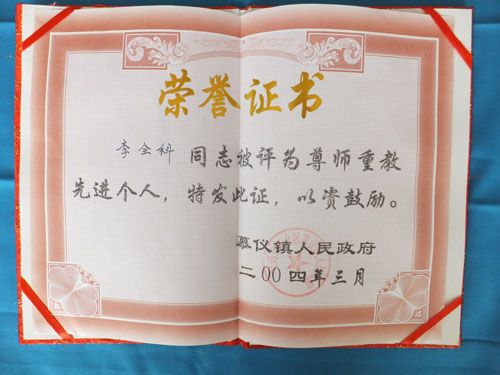 荣誉证书
李全科 同志被评为尊师重教
先进个人，特发此证，以资鼓励。
慕仪镇人民政府
二00四年三月